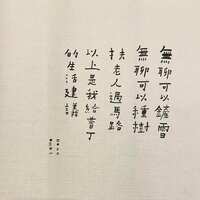 無聊可以鏟雪
無聊可以種樹
扶老人過馬路
以上是我給曹丁
的生活建議